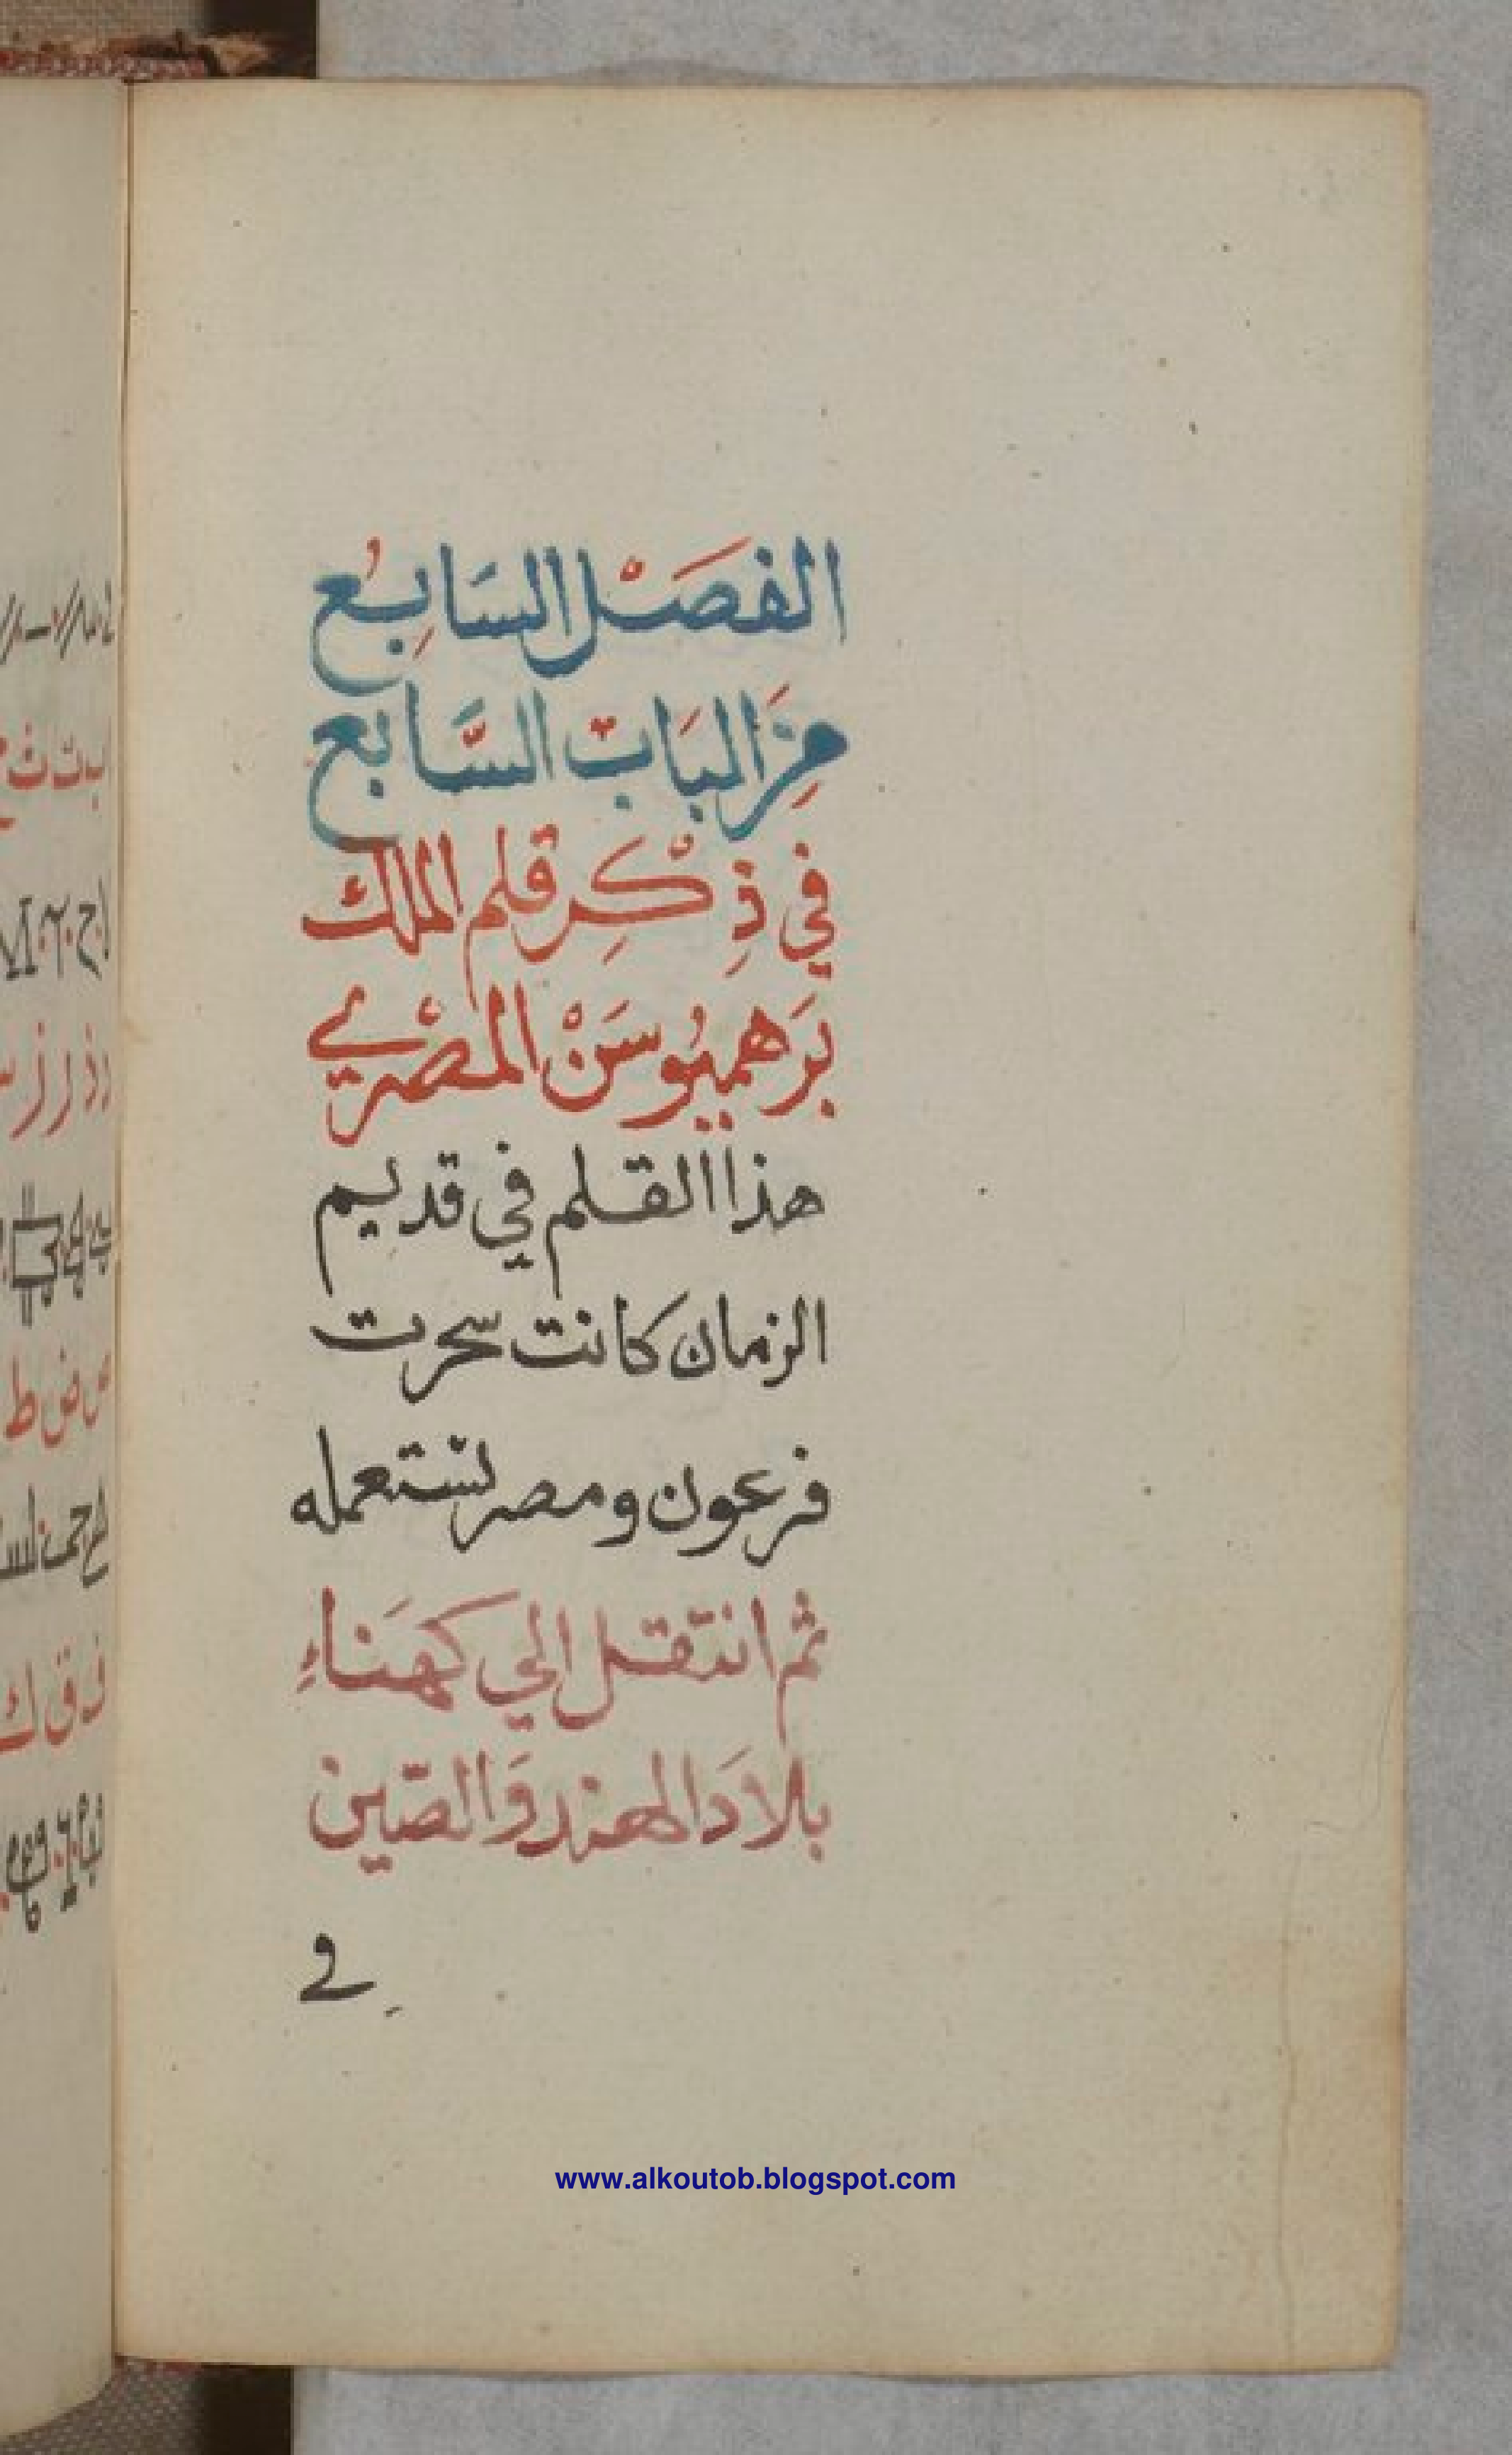 الفصْل السَابِعُ
مِنَ البَابِ السَّابع
في ذِكْرِ قلم الملك
بَرهميُوسَنْ المصْري
هذا القلم في قديم
الزمان كانت سحرت
فرعون ومصر تستعمله
ثم انتقل الي كهَناءِ
بلاَدَ الهند وَالصّين
في
www.alkoutob.blogspot.com